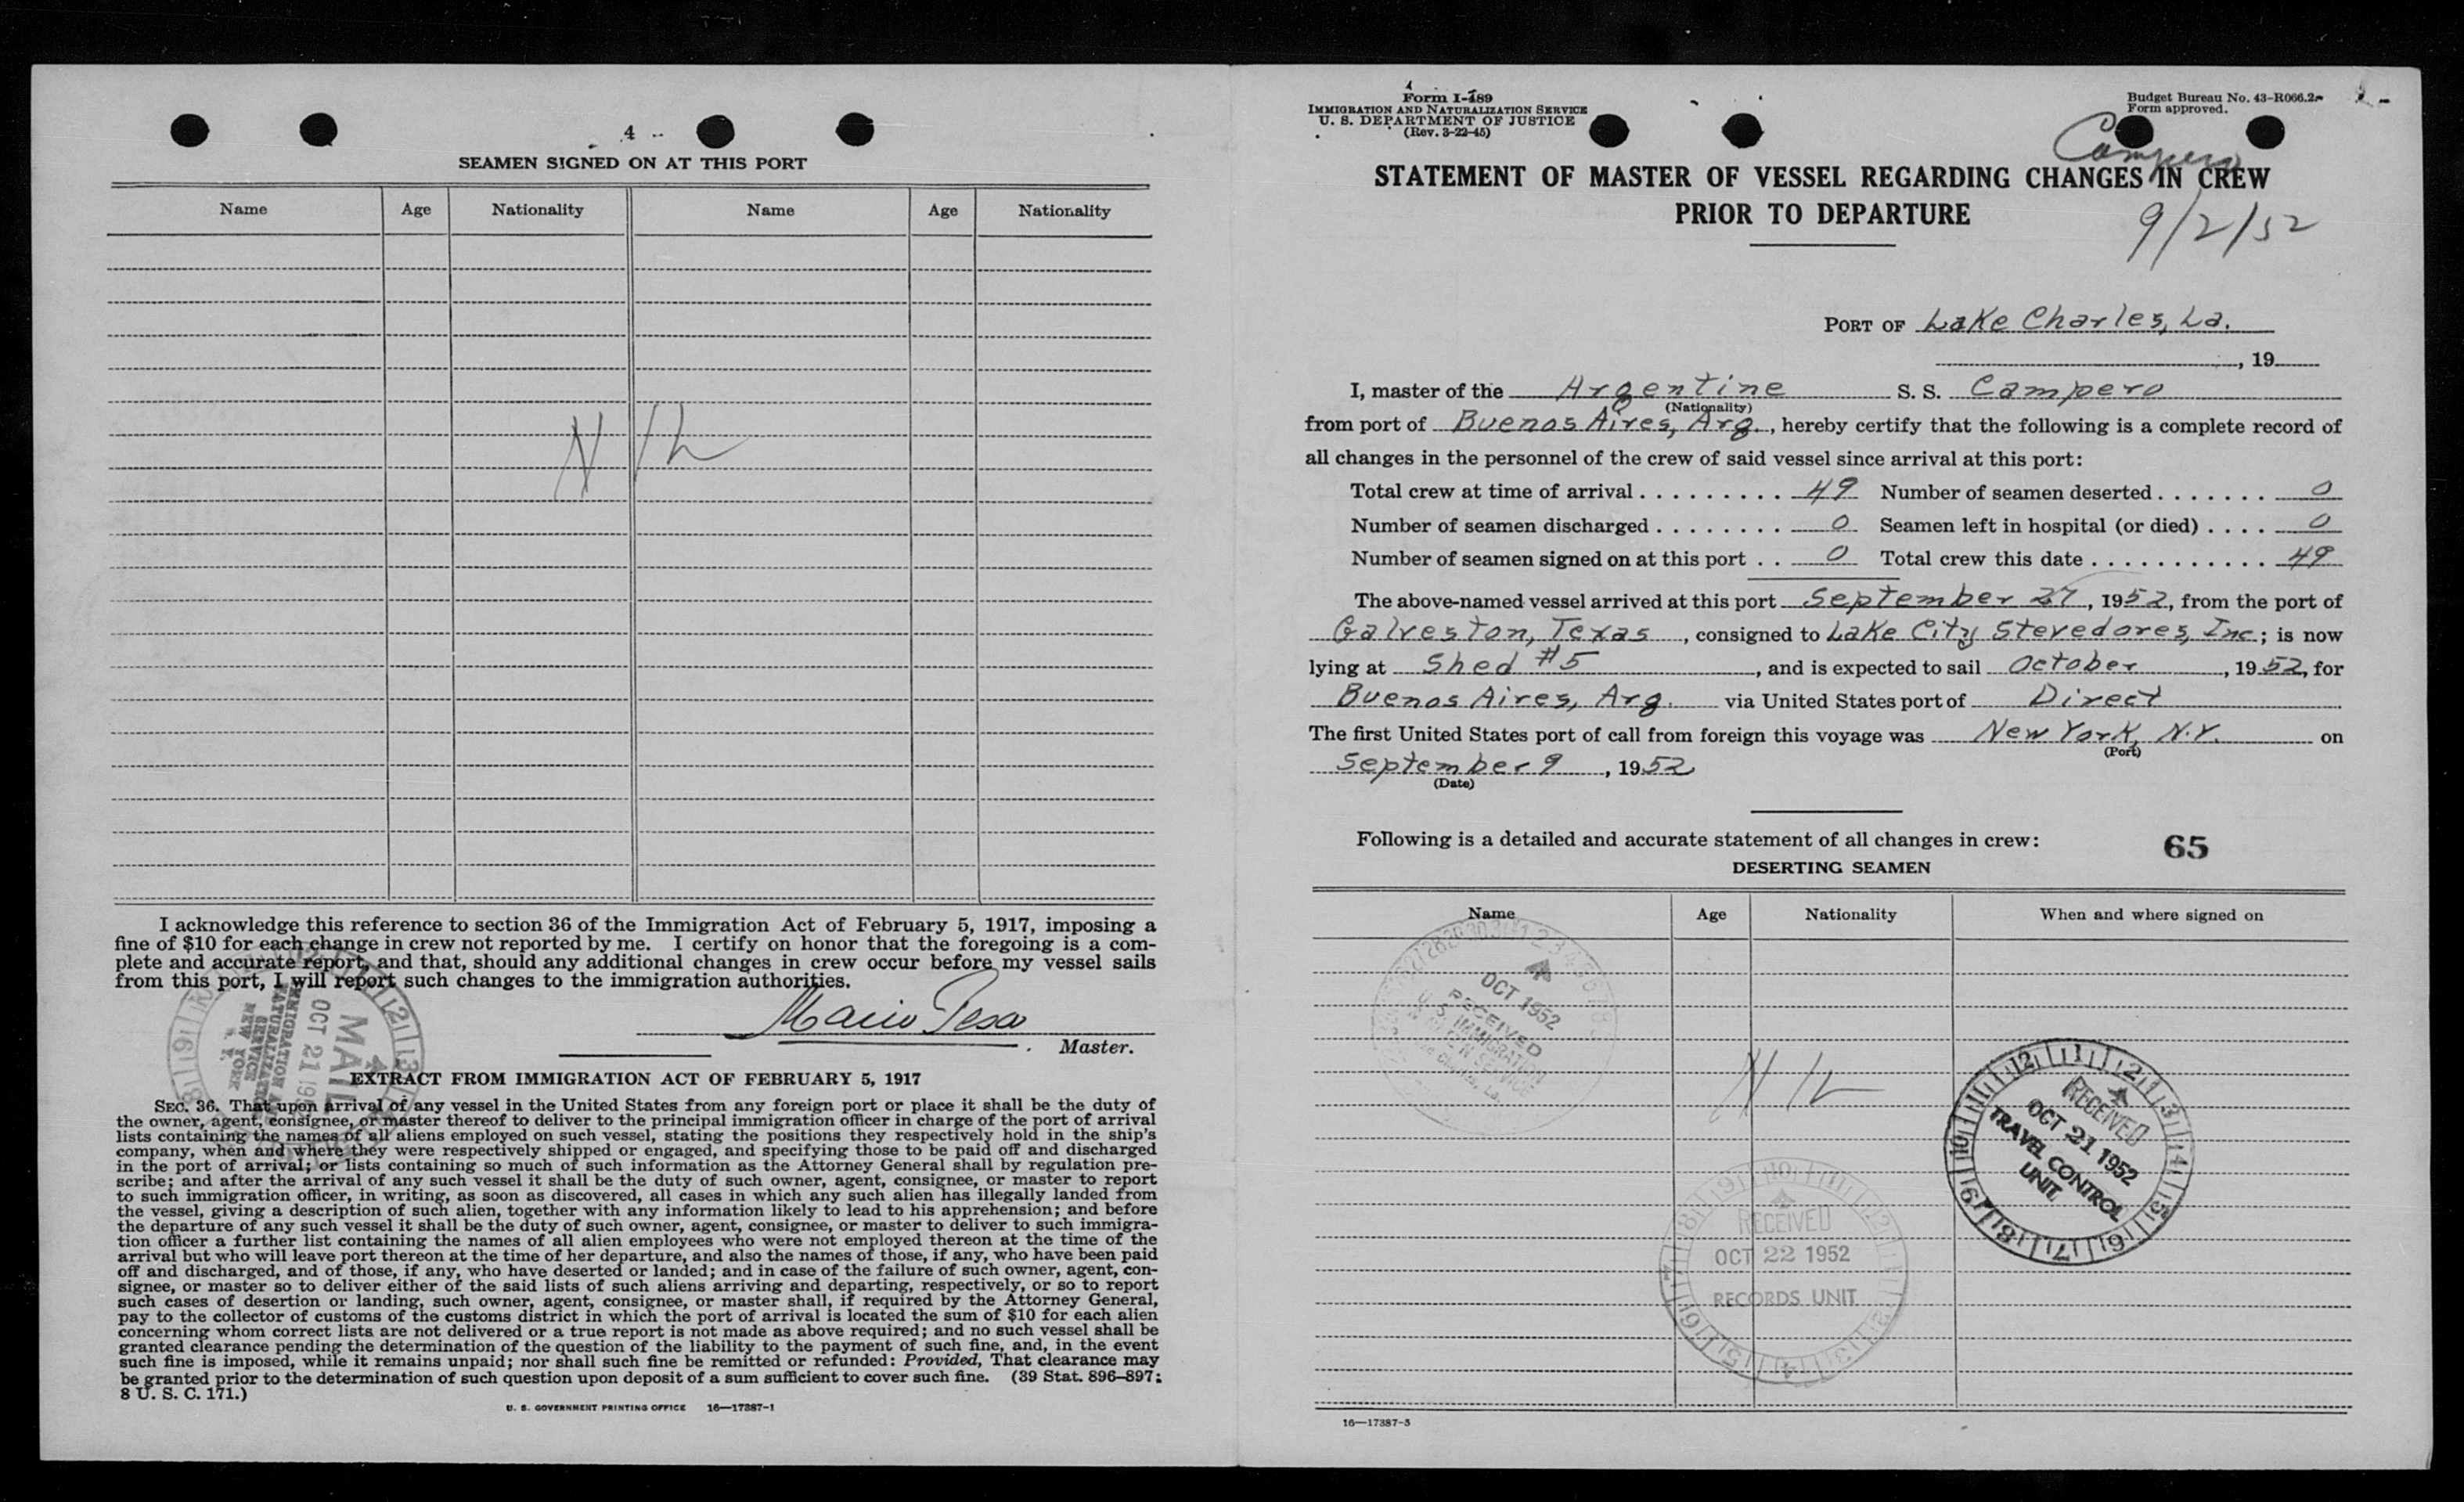 4
SEAMEN SIGNED ON AT THIS PORT
Name Age Nationality Name Age Nationality
I acknowledge this reference to section 36 of the Immigration Act of February 5, 1917, imposing a
fine of $10 for each change in crew not reported by me. I certify on honor that the foregoing is a com-
plete and accurate report, and that, should any additional changes in crew occur before my vessel sails
from this port, I will report such changes to the immigration authorities.
Master.
MAIL
OCT 21
IMMIGRATION
NATURALIZATION
SERVICE
NEW YORK
EXTRACT FROM IMMIGRATION ACT OF FEBRUARY 5, 1917
SEC. 36. That upon arrival of any vessel in the United States from any foreign port or place it shall be the duty of
the owner, agent, consignee, or master thereof to deliver to the principal immigration officer in charge of the port of arrival
lists containing the names of all aliens employed on such vessel, stating the positions they respectively hold in the ship's
company, when and where they were respectively shipped or engaged, and specifying those to be paid off and discharged
in the port of arrival; or lists containing so much of such information as the Attorney General shall by regulation pre-
scribe; and after the arrival of any such vessel it shall be the duty of such owner, agent, consignee, or master to report
to such immigration officer, in writing, as soon as discovered, all cases in which any such alien has illegally landed from
the vessel, giving a description of such alien, together with any information likely to lead to his apprehension; and before
the departure of any such vessel it shall be the duty of such owner, agent, consignee, or master to deliver to such immigra-
tion officer a further list containing the names of all alien employees who were not employed thereon at the time of the
arrival but who will leave port thereon at the time of her departure, and also the names of those, if any, who have been paid
off and discharged, and of those, if any, who have deserted or landed; and in case of the failure of such owner, agent, con-
signee, or master so to deliver either of the said lists of such aliens arriving and departing, respectively, or so to report
such cases of desertion or landing, such owner, agent, consignee, or master shall, if required by the Attorney General,
pay to the collector of customs of the customs district in which the port of arrival is located the sum of $10 for each alien
concerning whom correct lists are not delivered or a true report is not made as above required; and no such vessel shall be
granted clearance pending the determination of the question of the liability to the payment of such fine, and, in the event
such fine is imposed, while it remains unpaid; nor shall such fine be remitted or refunded: Provided, That clearance may
be granted prior to the determination of such question upon deposit of a sum sufficient to cover such fine. (39 Stat. 896–897;
8 U. S. C. 171.)
U. S. GOVERNMENT PRINTING OFFICE 16—17387-1
Form I-489
IMMIGRATION AND NATURALIZATION SERVICE
U. S. DEPARTMENT OF JUSTICE
(Rev. 3-22-45)
Budget Bureau No. 43-R066.2
Form approved.
Campero
STATEMENT OF MASTER OF VESSEL REGARDING CHANGES IN CREW
PRIOR TO DEPARTURE
9/2/52
PORT OF Lake Charles, La.
, 19
I, master of the Argentine S. S. Campero
(Nationality)
from port of Buenos Aires, Arg., hereby certify that the following is a complete record of
all changes in the personnel of the crew of said vessel since arrival at this port:
Total crew at time of arrival . . . . . . . . . 49 Number of seamen deserted . . . . . . . 0
Number of seamen discharged . . . . . . . . 0 Seamen left in hospital (or died) . . . . 0
Number of seamen signed on at this port . . 0 Total crew this date . . . . . . . . . . . 49
The above-named vessel arrived at this port September 27, 1952, from the port of
Galveston, Texas, consigned to Lake City Stevedores, Inc.; is now
lying at Shed #5, and is expected to sail October, 1952, for
Buenos Aires, Arg. via United States port of Direct
The first United States port of call from foreign this voyage was New York, N.Y. on
(Port)
September 9, 1952
(Date)
Following is a detailed and accurate statement of all changes in crew: 65
DESERTING SEAMEN
Name Age Nationality When and where signed on
OCT 1952
RECEIVED
U. S. IMMIGRATION
RECEIVED
OCT 21 1952
TRAVEL CONTROL
UNIT
RECEIVED
OCT 22 1952
RECORDS UNIT
16—17387-3